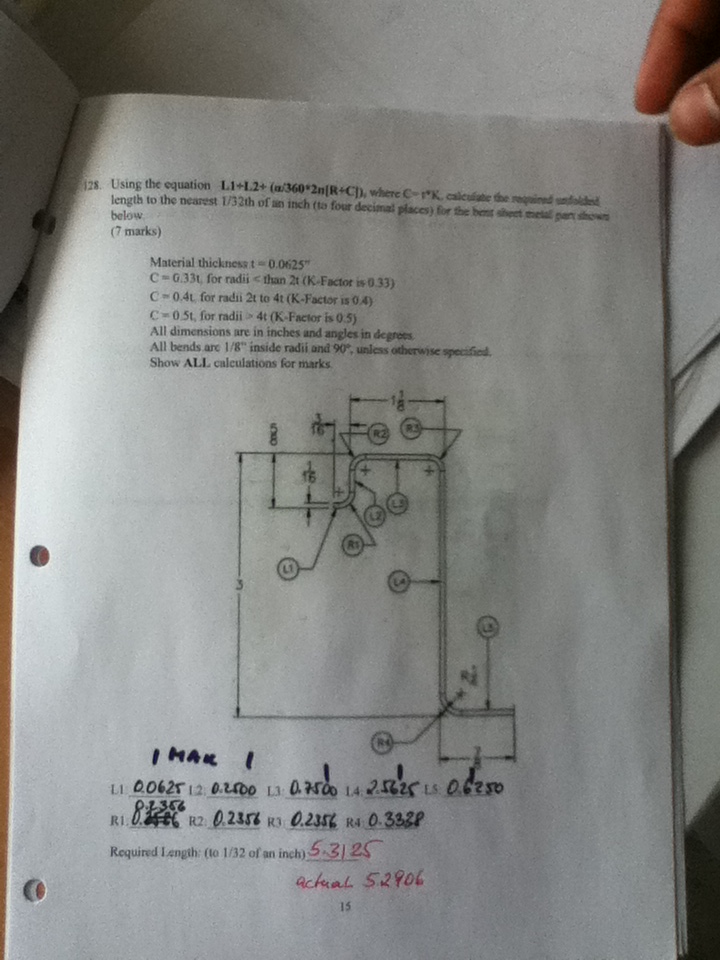 128. Using the equation L1+L2+ (α/360*2π[R+C]), where C=t*K, calculate the required unfolded
length to the nearest 1/32th of an inch (to four decimal places) for the bent sheet metal part shown
below.
(7 marks)
Material thickness t = 0.0625"
C = 0.33t, for radii < than 2t (K-Factor is 0.33)
C = 0.4t, for radii 2t to 4t (K-Factor is 0.4)
C = 0.5t, for radii > 4t (K-Factor is 0.5)
All dimensions are in inches and angles in degrees.
All bends are 1/8" inside radii and 90°, unless otherwise specified.
Show ALL calculations for marks.
1 1/8
5/8
3/16
R2
R3
1/16
L3
L2
R1
L1
L4
3
L5
R4
7/8
1 MARK 1 1 1 1
L1: 0.0625 L2: 0.2500 L3: 0.7500 L4: 2.5625 L5: 0.6250
0.2356
R1: R2: 0.2356 R3: 0.2356 R4: 0.3338
Required Length: (to 1/32 of an inch) 5.3125
actual 5.2906
15